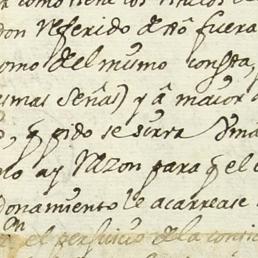 como tiene los
don referido dño fuera
como del mismo consta,
esmas Señas) y â maior
q̃ pido se sirva
lo ay razon para q̃ el
donamiento le acarrease
el perjuicio de la consi